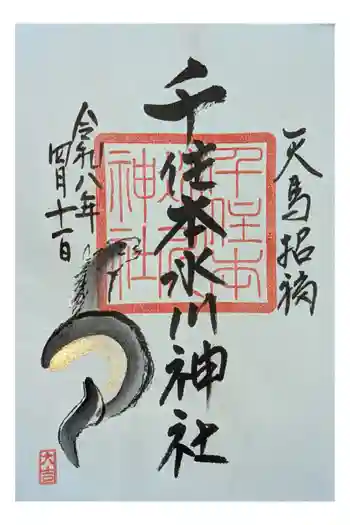 天馬招福
千住本氷川神社
令和八年
四月十一日
千住本
氷川
神社
大吉